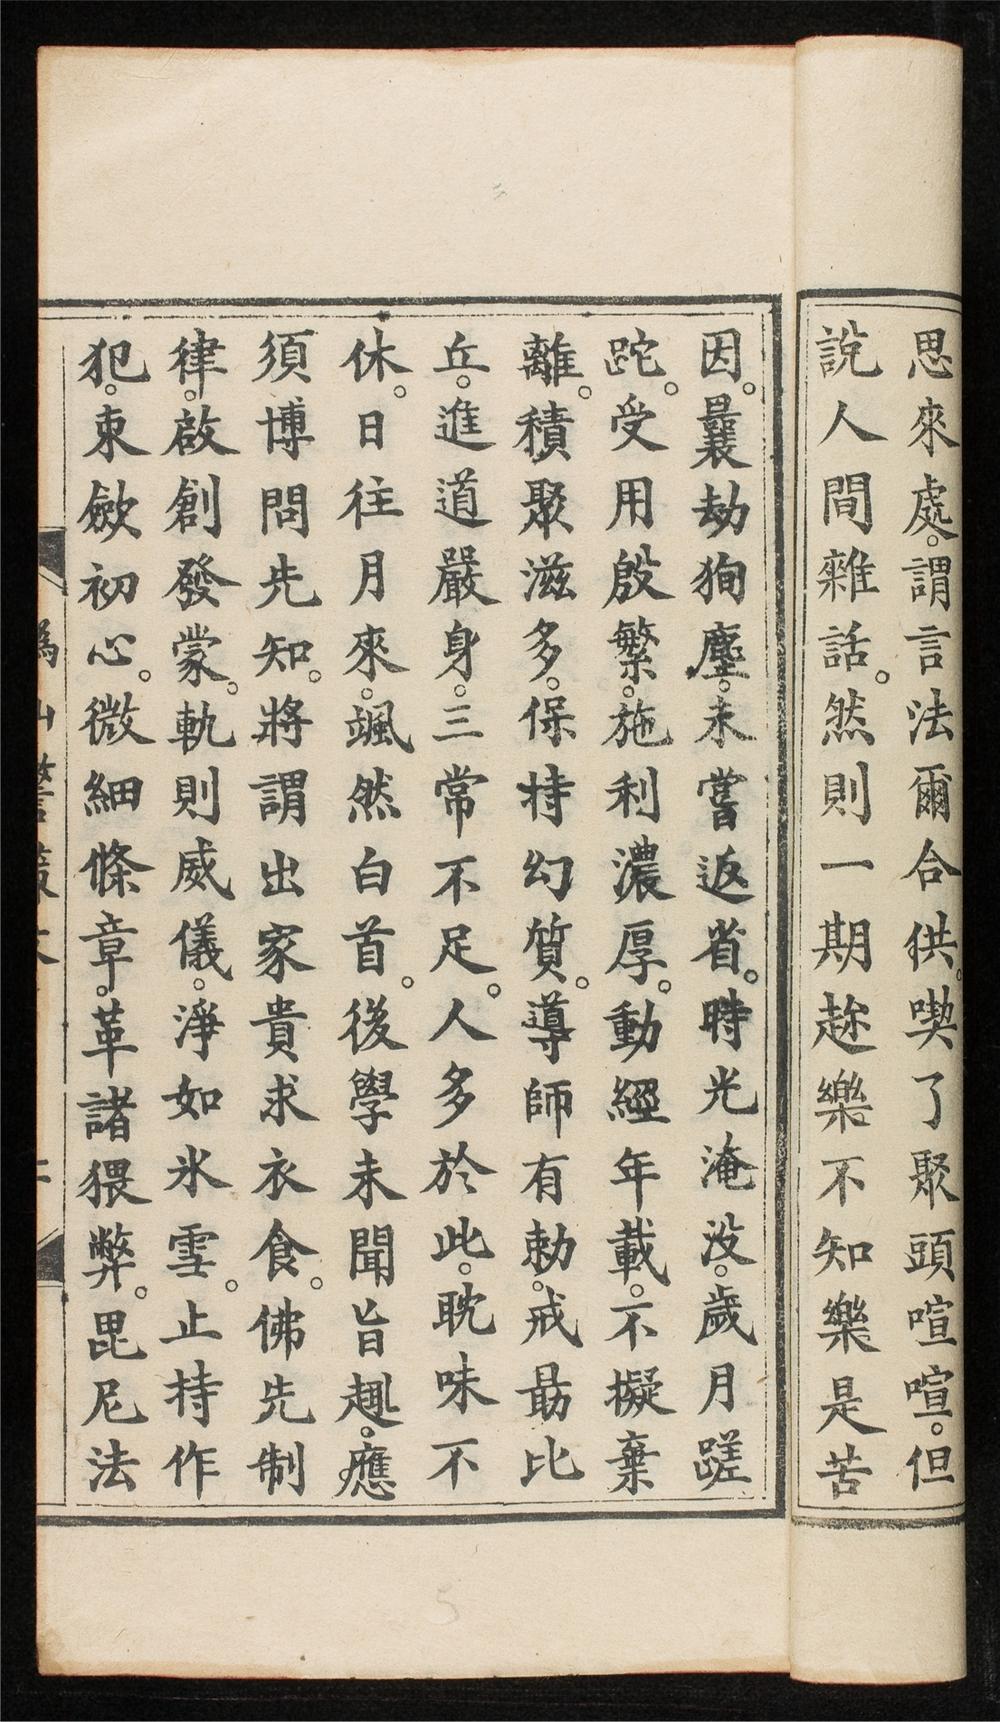 思來處。謂言法爾合供。喫了聚頭喧喧。但
說人間雜話。然則一期趂樂不知樂是苦
因。曩劫狥塵。未嘗返省。時光淹没。歲月蹉
跎。受用殷繁。施利濃厚。動經年載。不擬棄
離。積聚滋多。保持幻質。導師有勅。戒勗比
丘。進道嚴身。三常不足。人多於此。耽味不
休。日往月來。颯然白首。後學未聞旨趣。應
須博問先知。將謂出家貴求衣食。佛先制
律。啟創發蒙。軌則威儀。淨如氷雪。止持作
犯。束斂初心。微細條章。革諸猥弊。毘尼法
5